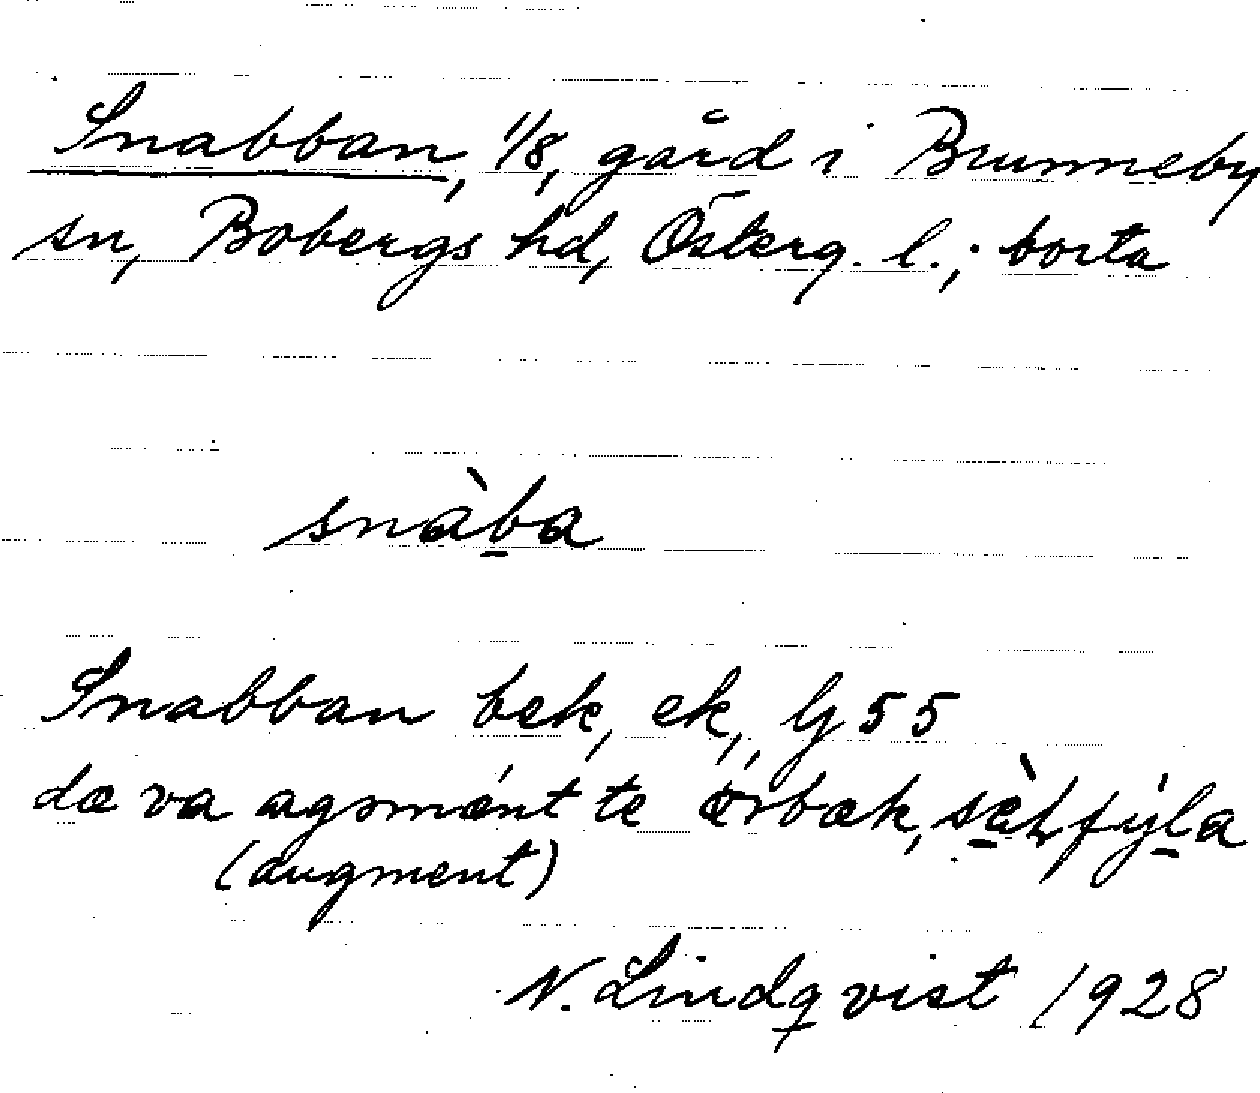 Snabban, 1/8, gård i Brunneby
sn, Bobergs hd, Österg. l.; borta
snàba
Snabban bek, ek, G 55
dæ va agsmént te ørbæk,
(augment)
N. Lindqvist 1928